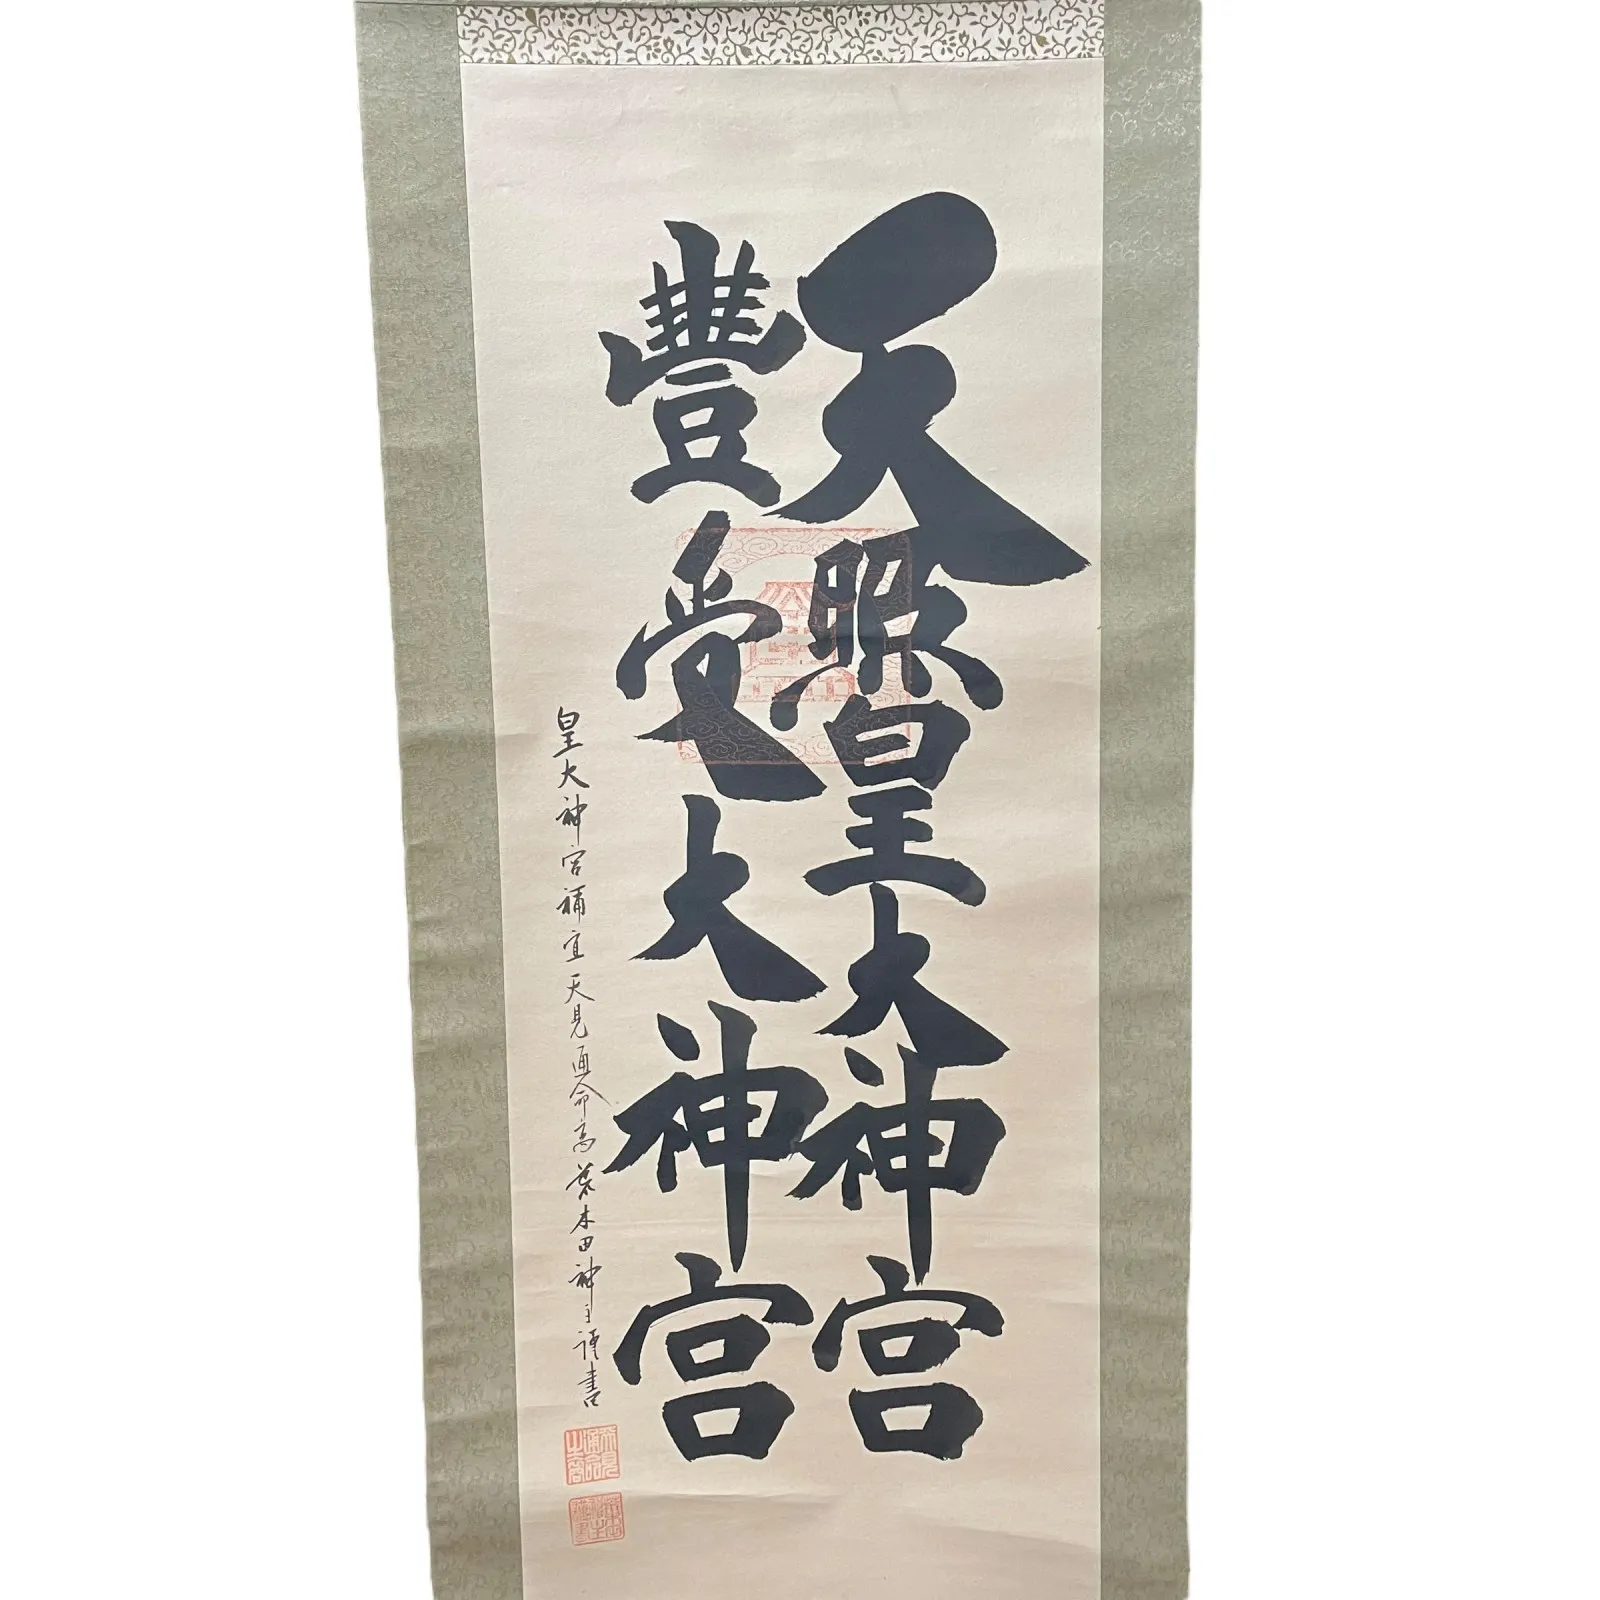 天照皇大神宮
豐受大神宮
皇大神宮禰宜天見通命裔荒木田神主謹書